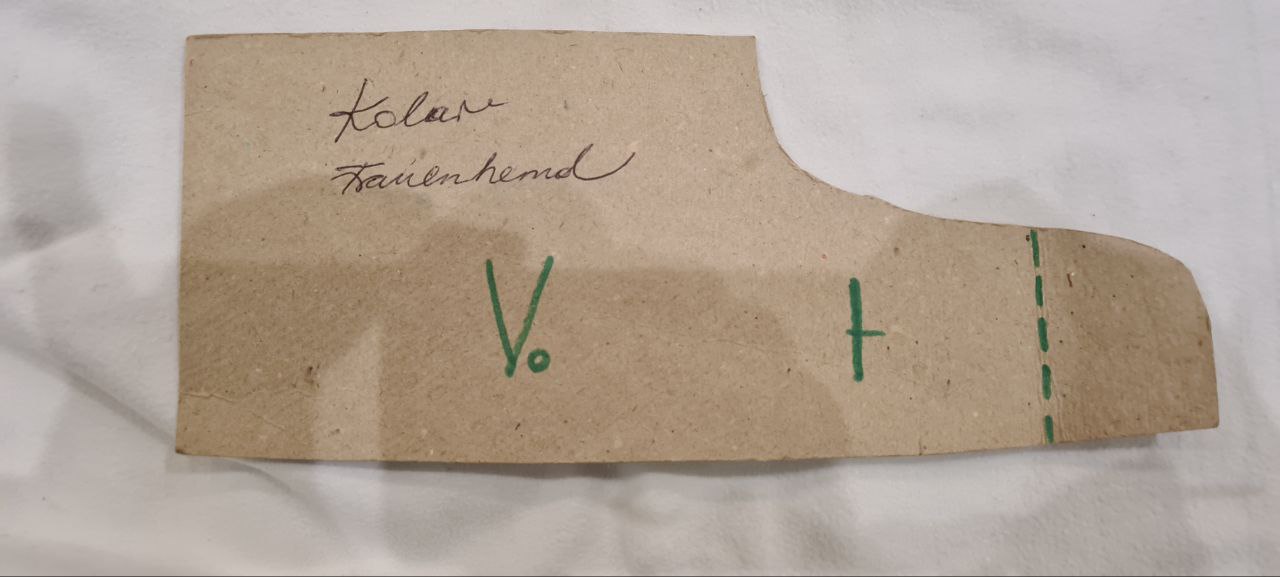 Kolar
Frauenhemd
Vo